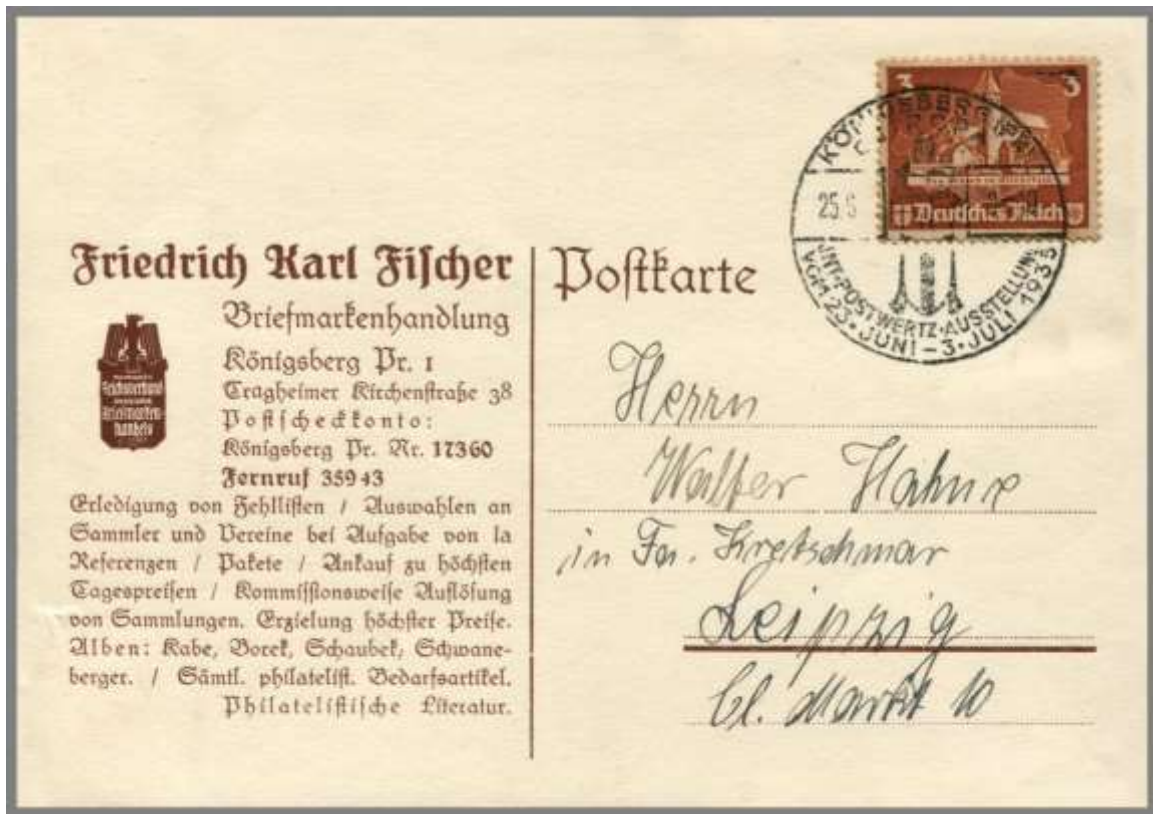 Friedrich Karl Fischer
Briefmarkenhandlung
Königsberg Pr. 1
Tragheimer Kirchenstraße 38
Postscheckkonto:
Königsberg Pr. Nr. 17360
Fernruf 35943
Reichsverband
Briefmarken-
handels
Erledigung von Fehllisten / Auswahlen an
Sammler und Vereine bei Aufgabe von Ia
Referenzen / Pakete / Ankauf zu höchsten
Tagespreisen / Kommissionsweise Auflösung
von Sammlungen. Erzielung höchster Preise.
Alben: Kabe, Borek, Schaubek, Schwane-
berger. / Sämtl. philatelist. Bedarfsartikel.
Philatelistische Literatur.
Postkarte
3 3
Deutsches Reich
KÖNIGSBERG (PR)
25.6
INT. POSTWERTZ. AUSSTELLUNG
VOM 23. JUNI - 3. JULI 1935
Herrn
Walter Hahne
in Fa. Kretschmar
Leipzig
Markt 10